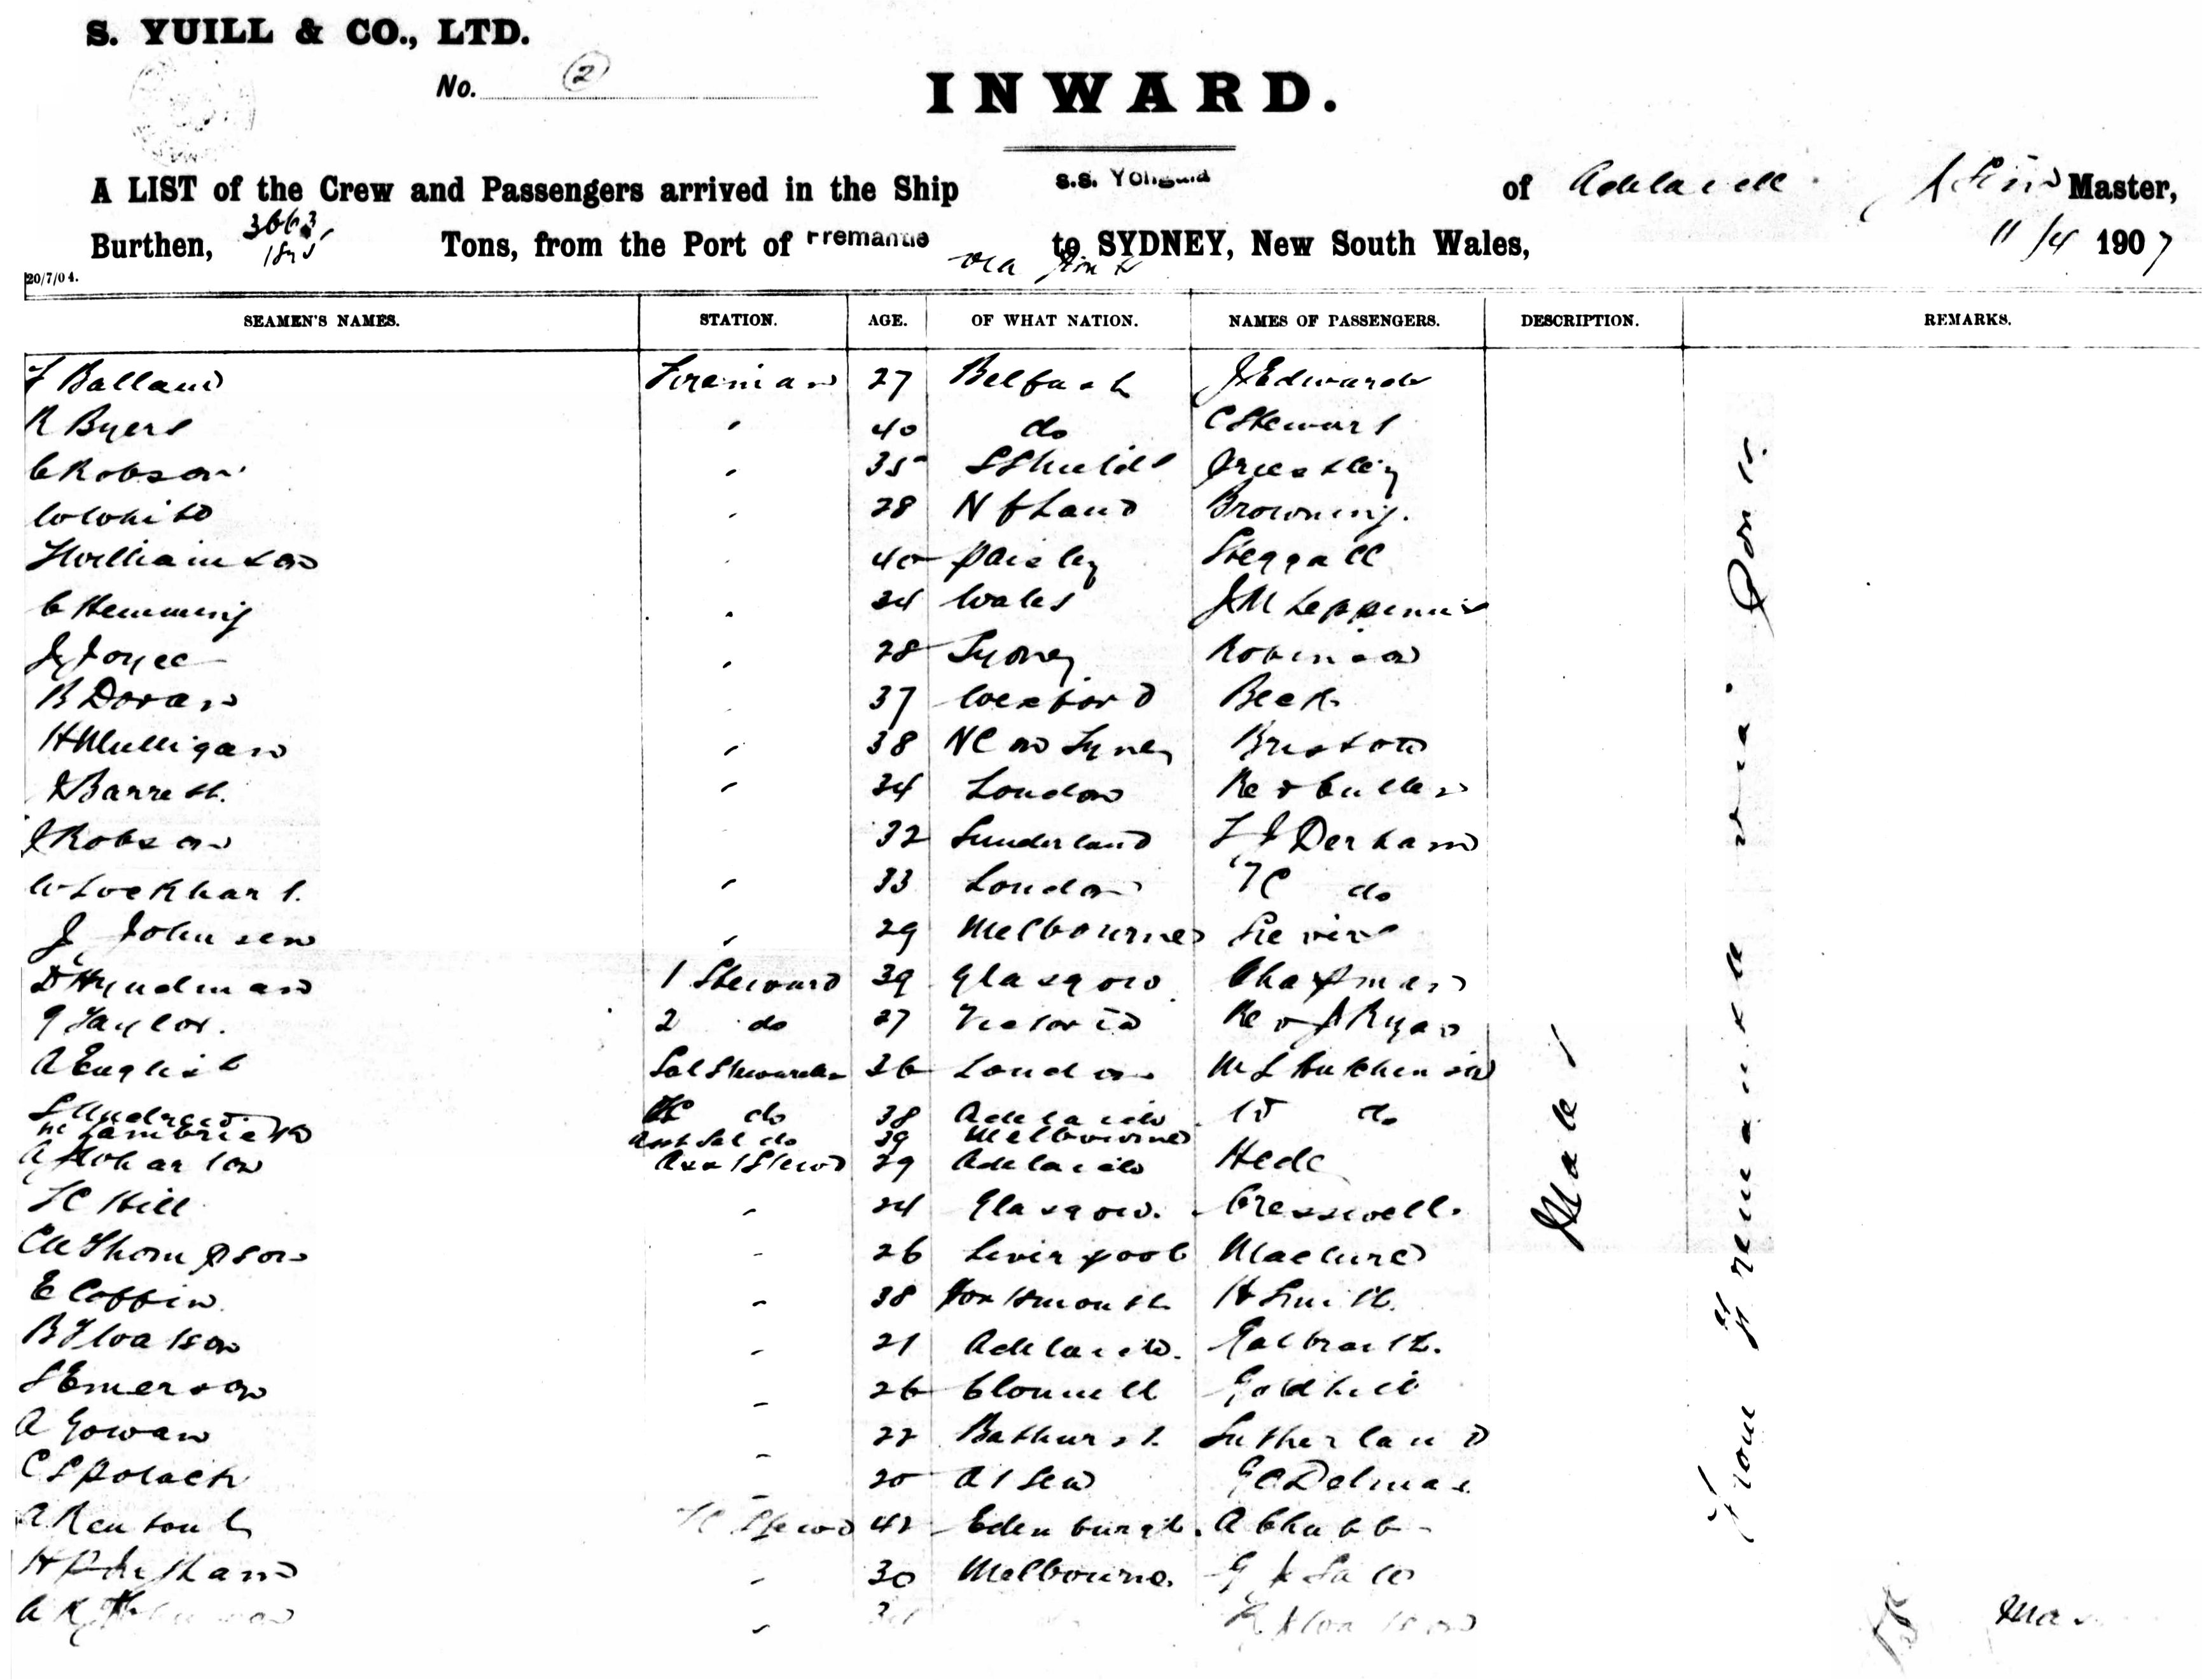 S. YUILL & CO., LTD.
No. 2
INWARD.
A LIST of the Crew and Passengers arrived in the Ship s.s. Yongala of Adelaide Master,
Burthen, 3663 Tons, from the Port of Fremantle via to SYDNEY, New South Wales, 11/4 1907
20/7/04.
SEAMEN'S NAMES. STATION. AGE. OF WHAT NATION. NAMES OF PASSENGERS. DESCRIPTION. REMARKS.
Balland Fireman 27 Belfast J Edwards
R Byers " 40 do C Stewart
C Robson " 35 S Shields Priestley
W White " 28 N f Land Browning.
Williamson " 40 Paisley Steggall
C Hemming " 34 Wales
J Joyce " 28 Sydney Robinson
B Doran " 37 Wexford Beck
H Mulligan " 38 NC on Tyne Bristow
J Barrett. " 34 London Rev Cullen
J Robson " 32 Sunderland Derham
W Lockhart. " 33 London do
J Johnsen " 29 Melbourne
D Hyndman 1 Steward 39 Glasgow Chapman
G Taylor. 2 do 27 Victoria Rev J Ryan
A English Sal Steward 36 London Hutchinson
S Andrews do 38 Adelaide do
Lambrick Asst Sal do 39 Melbourne
A Asst Stewd 29 Adelaide Hede
T C Hill " 24 Glasgow. Cresswell.
Thompson " 26 Liverpool Maclure
E Coffin " 38 Portsmouth H Smith.
Watson " 21 Adelaide. Galbraith.
S Emerson " 26 Clonmell
A Gowan " 22 Bathurst. Sutherland
C S Polack " 20 At Sea Delmas
A Stewd 42 Edenburgh. A Chubb
H " 30 Melbourne G
A " Watson
Males
From Fremantle via Ports